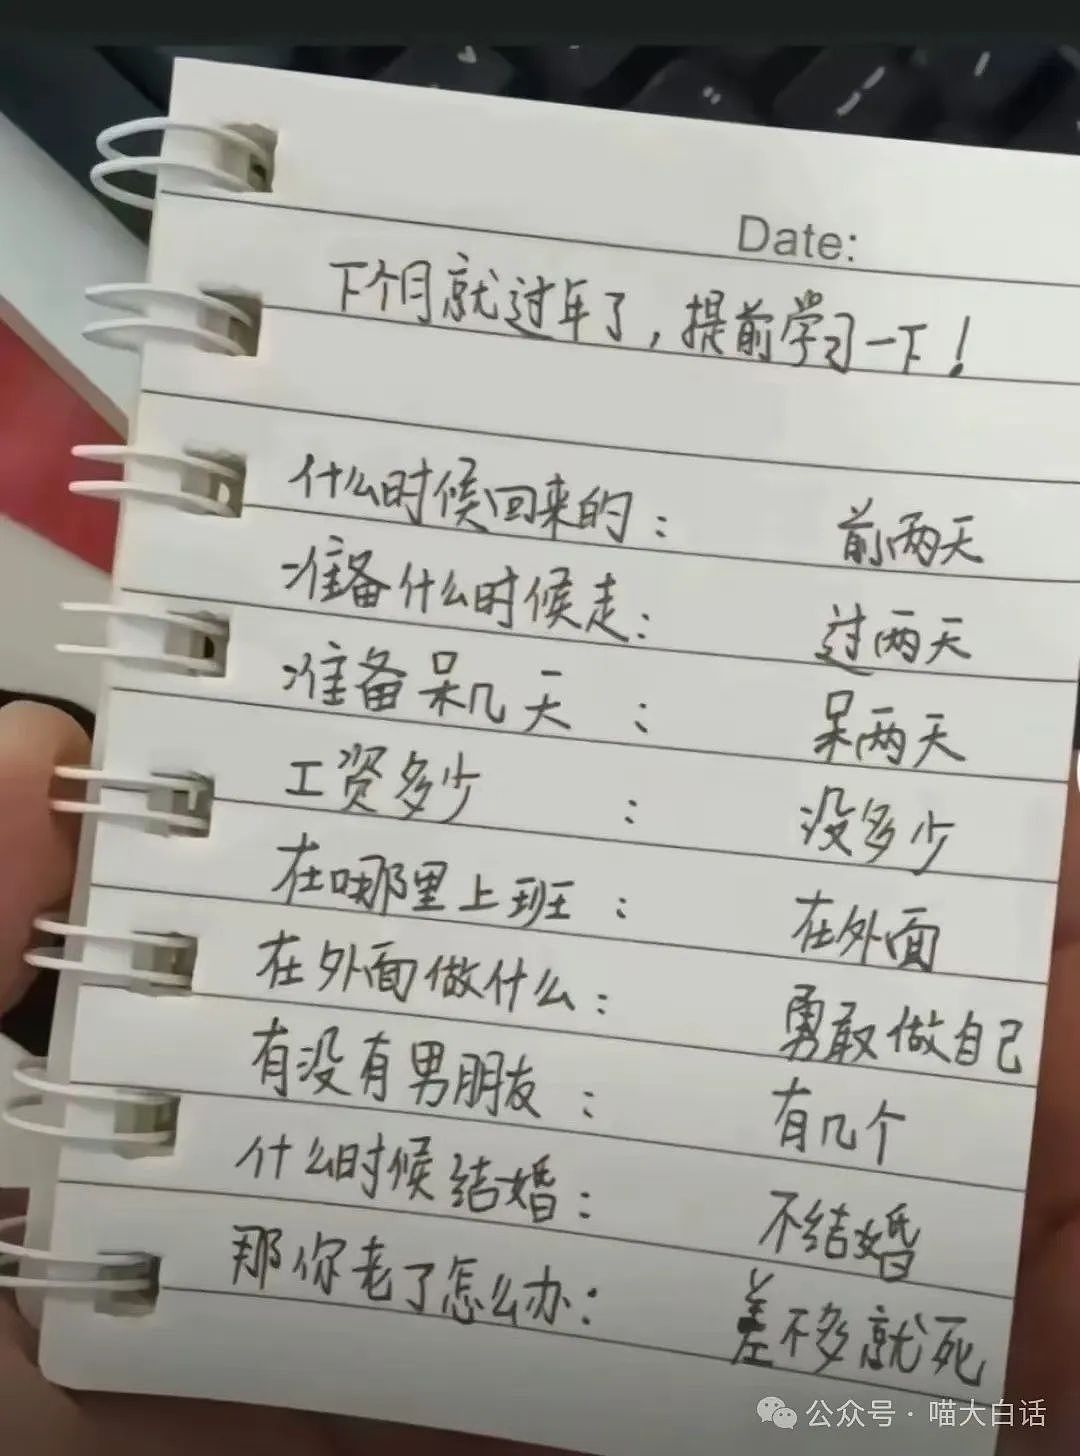 Date:
下个月就过年了，提前学习一下！
什么时候回来的： 前两天
准备什么时候走： 过两天
准备呆几天： 呆两天
工资多少： 没多少
在哪里上班： 在外面
在外面做什么： 勇敢做自己
有没有男朋友： 有几个
什么时候结婚： 不结婚
那你老了怎么办： 差不多就死
公众号·喵大白话